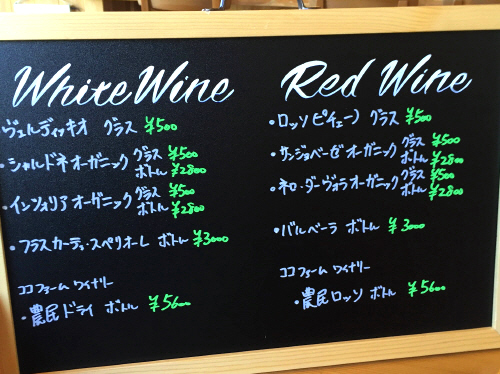 White Wine
・ヴェルディッキオ グラス ¥500
・シャルドネ オーガニック グラス ¥500
ボトル ¥2800
・インツォリア オーガニック グラス ¥500
ボトル ¥2800
・フラスカーティ・スペリオーレ ボトル ¥3000
ココファーム ワイナリー
・農民ドライ ボトル ¥5600
Red Wine
・ロッソピチェーノ グラス ¥500
・サンジョベーゼ オーガニック グラス ¥500
ボトル ¥2800
・ネロ・ダーヴォラ オーガニック グラス ¥500
ボトル ¥2800
・バルベーラ ボトル ¥3000
ココファーム ワイナリー
・農民ロッソ ボトル ¥5600